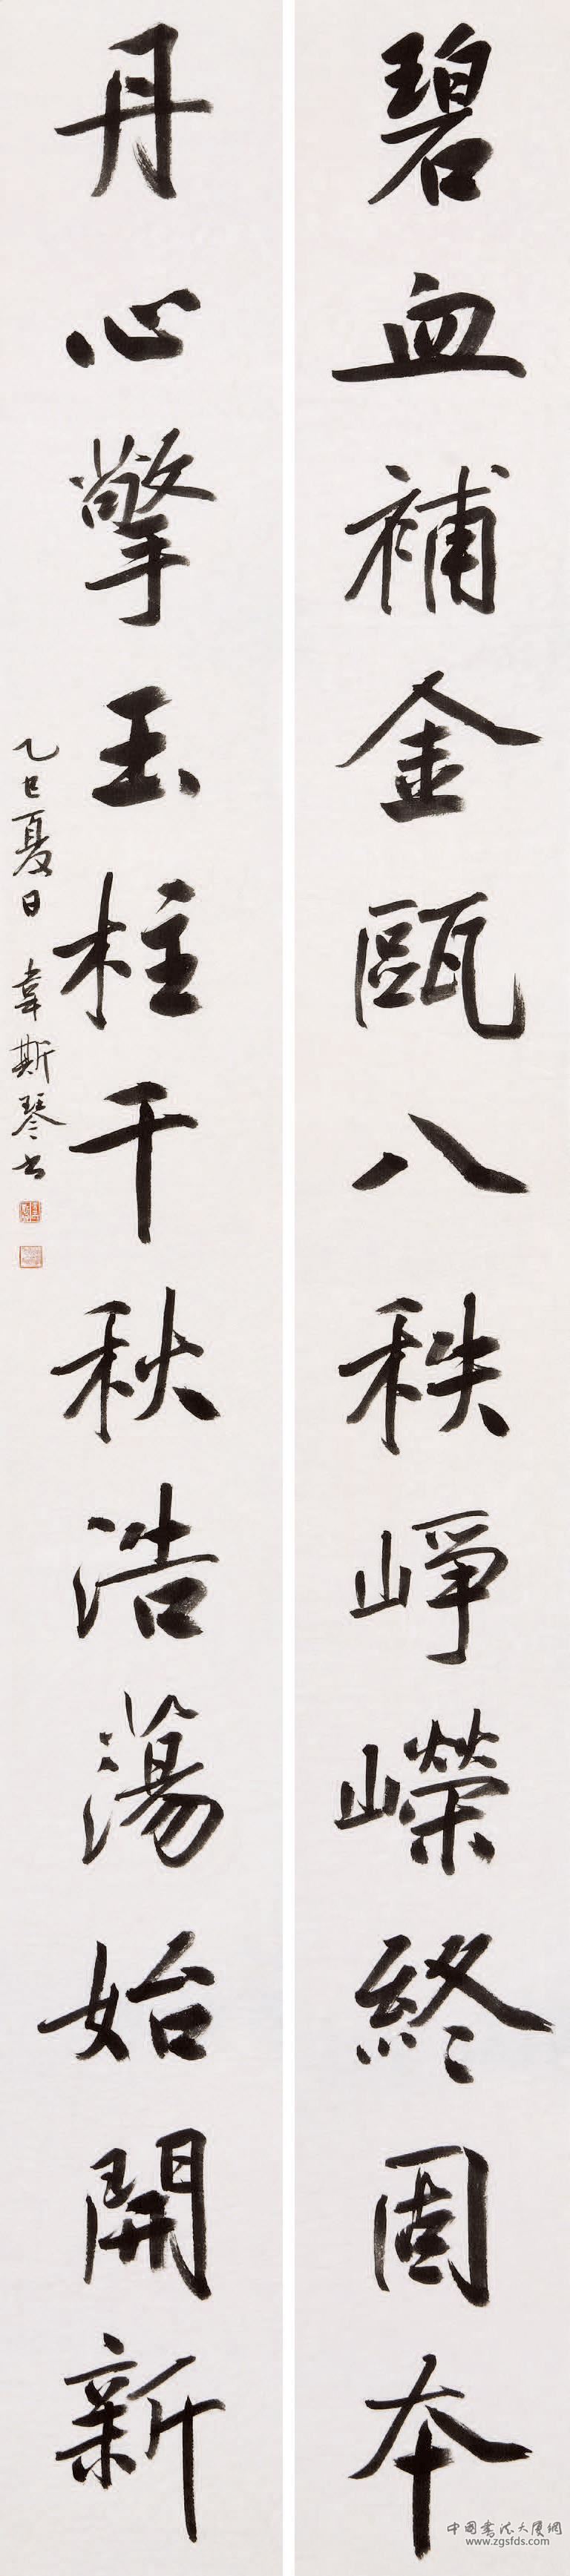 碧血補金甌八秩崢嶸終固本
丹心擎玉柱千秋浩蕩始開新
乙巳夏日 韋斯琴書
中国书法大厦網
www.zgsfds.com